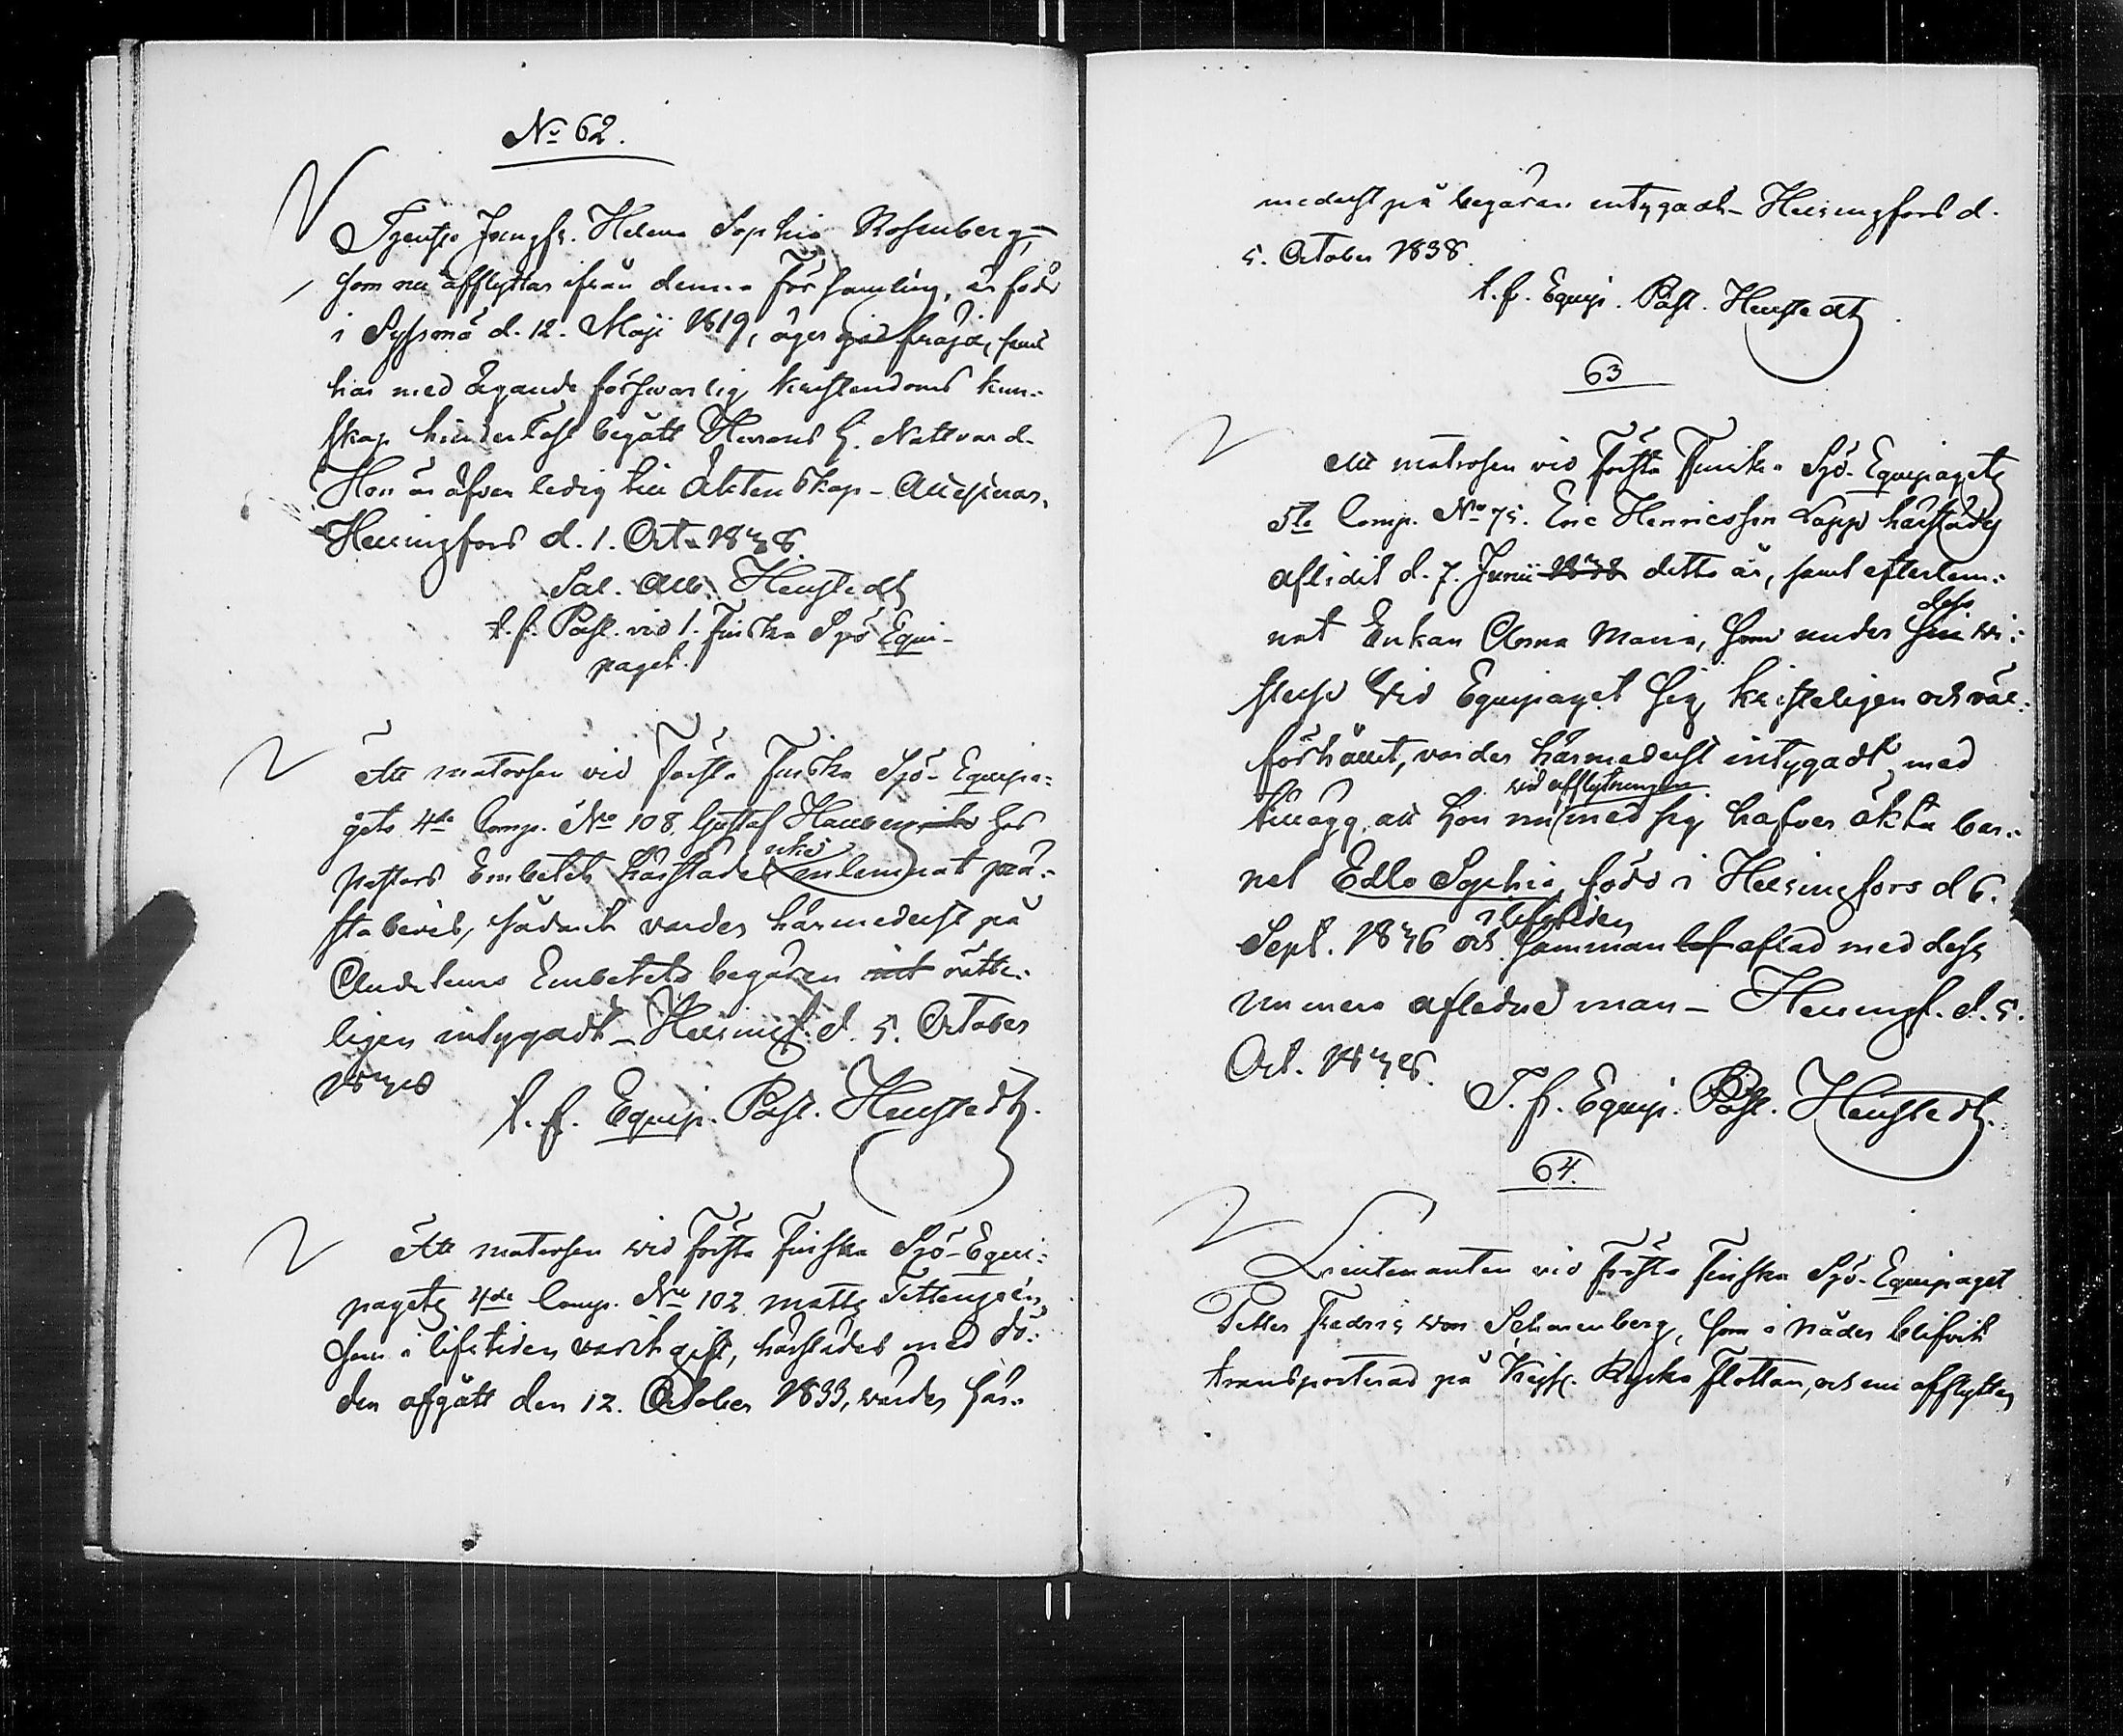 No 62.
Tjenstgö Jungfr. Helena Sophia Rosenberg,
som nu afflyttar ifrån denna församling, är född
i Sysmä d. 12. Maji 1819, äger god frejd, samt
har med ägande försvarlig kristendoms kun-
skap hinderlöst begått Herrans H. Nattvard.
Hon är äfven ledig till Äktenskap -
Helsingfors d. 1. Oct. 1838.
Sal. Alb. Henstedt
t. f. Past. vid 1. Finska Sjö Equi-
paget.
Att matrosen vid Första Finska Sjö-Equipa-
gets 4de Comp. No 108. Gustaf hos
Pastors Embetet härstädes icke inlemnat prä-
stabevis, sådant varder härmedelst på
Auditeurs Embetets begäran rätte-
ligen intygadt - Helsingf. d. 5. October
1838
t. f. Equip. Past. Henstedt.
Att matrosen vid Första Finska Sjö-Equi-
pagets 4de Comp. No 102 Matts
som i lifstiden varit gift, härstädes med dö-
den afgått den 12. October 1833, warder här-
medelst på begäran intygadt - Helsingfors d.
5. October 1838.
t. f. Equip. Past. Henstedt
63
Att matrosen vid Första Finska Sjö-Equipagets
5te Comp. No 75. Eric Henricsson Lapp härstädes
aflidit d. 7. Junii 1838 detta år, samt efterlem-
nat Enkan Anna Maria, som under sin dess vi-
stelse vid Equipaget sig kristeligen och väl
förhållit, varder härmedelst intygadt, med
vid afflytningen
tillägg att hon nu med sig hafver äkta bar-
net Edla Sophia, född i Helsingfors d 6.
i lifstiden
Sept. 1836 och samman aflad med dess
numera aflidne man - Helsingf. d. 5.
Oct. 1838.
T. f. Equip. Past. Henstedt.
64.
Lieutenanten vid Första Finska Sjö-Equipaget
Petter Fredric von Schonenberg, som i nåder blifvit
transporterad på Kejs. Ryska Flottan, och nu afflyttar